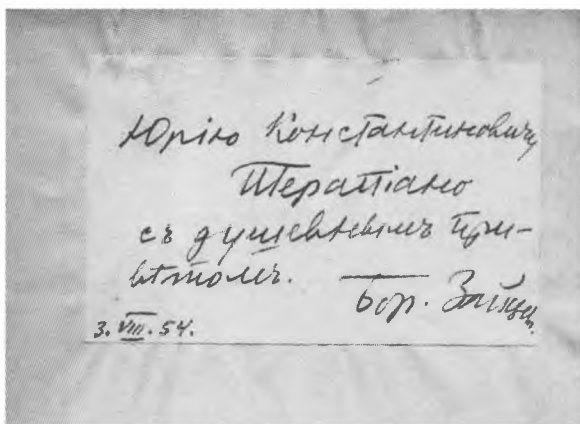 Юрію Константиновичу
Терапіано
съ душевнымъ при-
вѣтомъ.
Бор. Зайцев.
3.VIII.54.